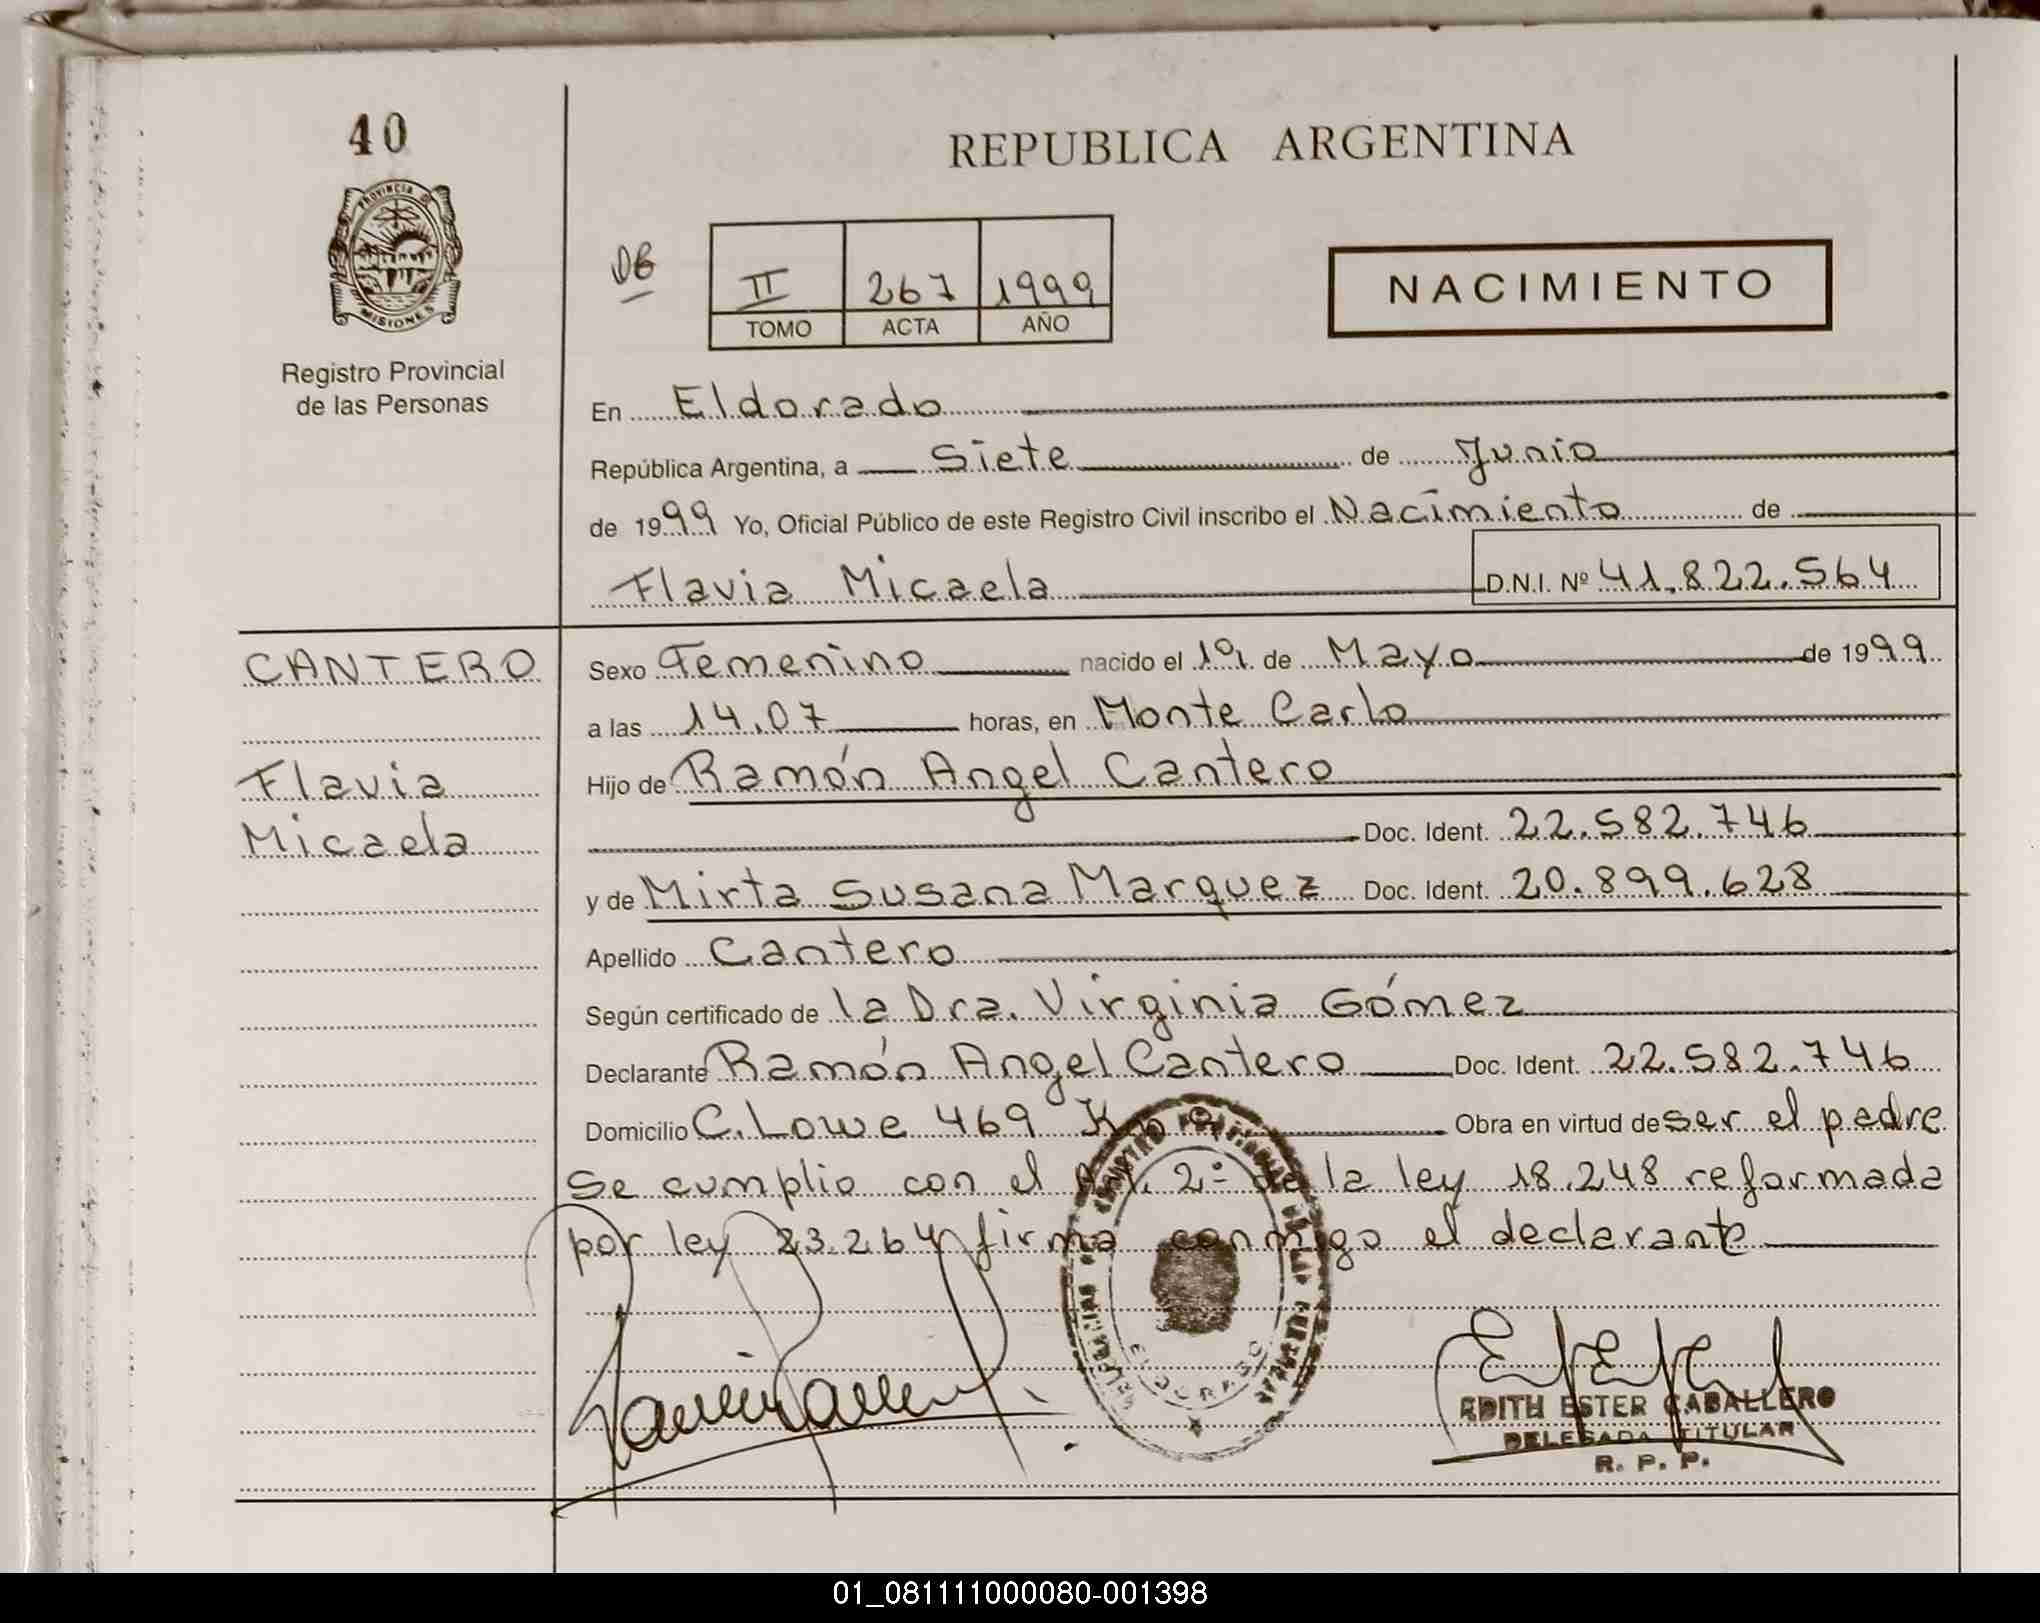 40
PROVINCIA D
MISIONES
Registro Provincial
de las Personas
REPUBLICA ARGENTINA
II 267 1999
TOMO ACTA AÑO
NACIMIENTO
En Eldorado
República Argentina, a siete de Junio
de 1999 Yo, Oficial Público de este Registro Civil inscribo el Nacimiento de
Flavia Micaela D.N.I. Nº 41.822.564
CANTERO
Flavia
Micaela
Sexo Femenino nacido el 1º de Mayo de 1999
a las 14.07 horas, en Monte Carlo
Hijo de Ramón Angel Cantero
Doc. Ident. 22.582.746
y de Mirta Susana Marquez Doc. Ident. 20.899.628
Apellido Cantero
Según certificado de la Dra. Virginia Gómez
Declarante Ramón Angel Cantero Doc. Ident. 22.582.746
Domicilio C. Lowe 469 Obra en virtud de ser el padre
Se cumplio con el Art. 2º de la ley 18.248 reformada
por ley 23.264 firma conmigo el declarante
ELDORADO
EDITH ESTER CABALLERO
DELEGADA TITULAR
R. P. P.
01_081111000080-001398